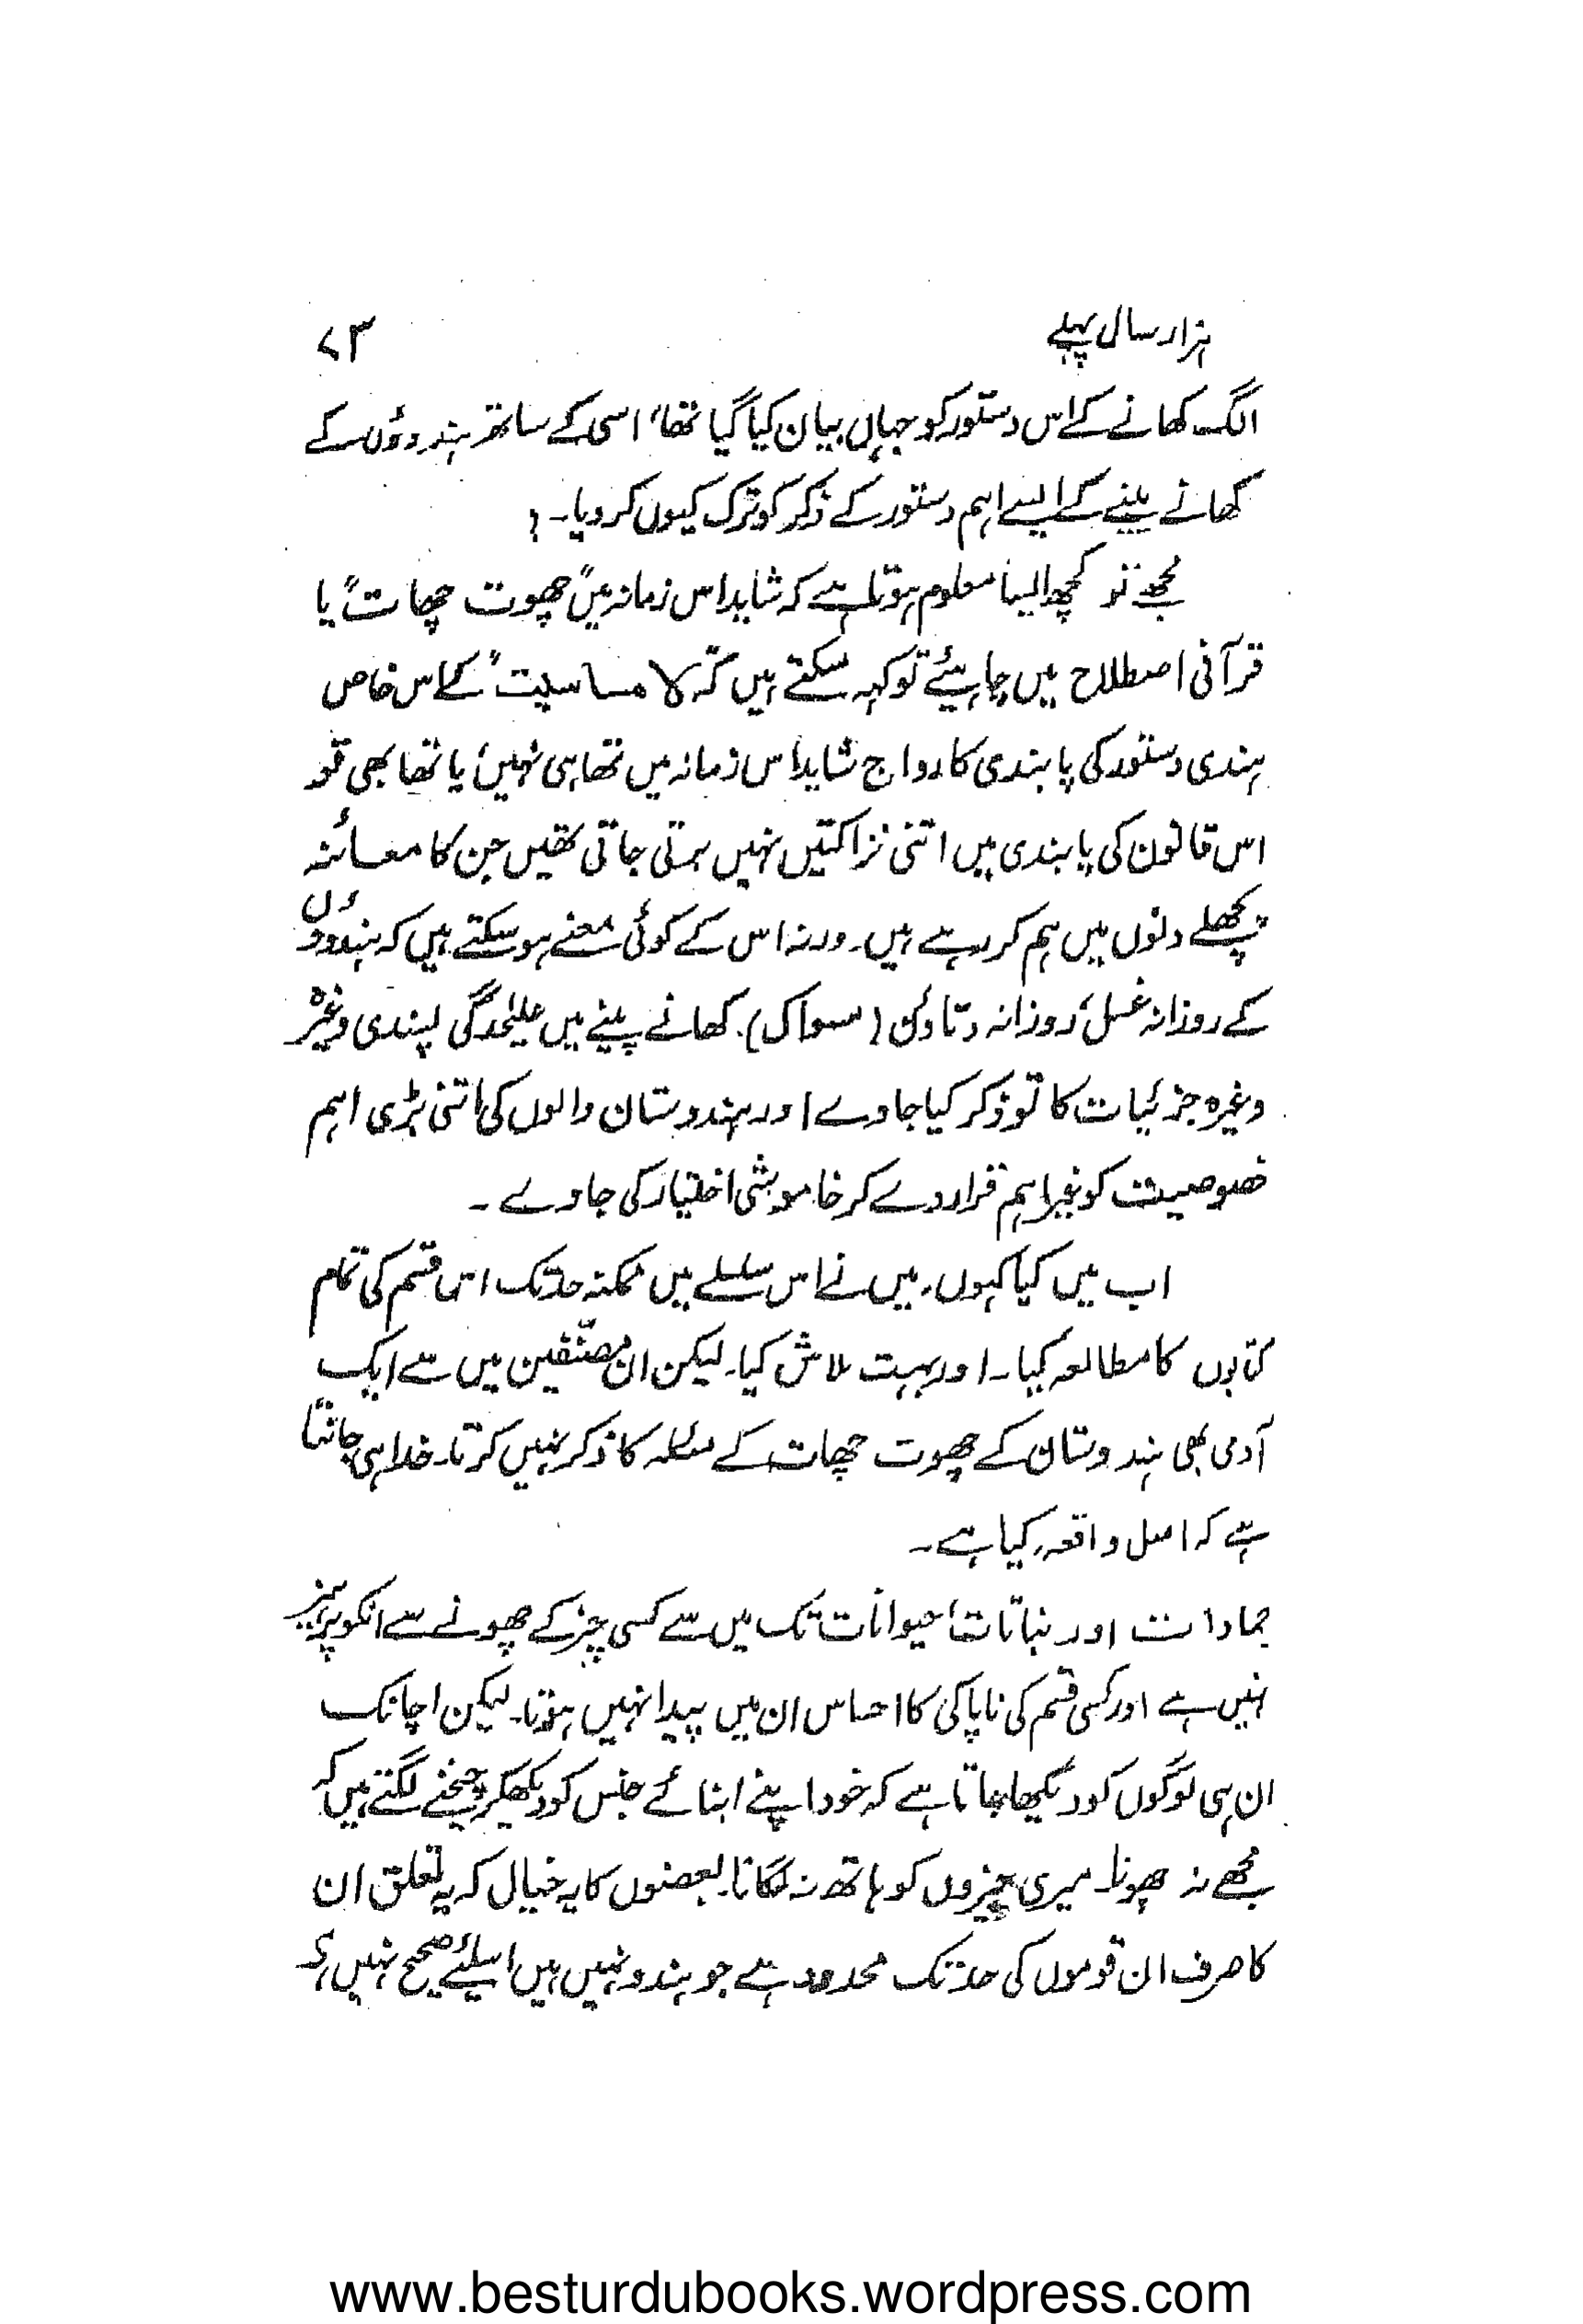 ہزار سال پہلے
۷۳
الگ کھانے کے اس دستور کو جہاں بیان کیا گیا تھا، اسی کے ساتھ ہندوؤں کے
کھانے پینے کے ایسے اہم دستور کے ذکر کو ترک کیوں کر دیا۔؟
مجھے تو کچھ ایسا معلوم ہوتا ہے کہ شاید اس زمانہ میں "چھوت چھات" یا
قرآنی اصطلاح میں چاہیئے تو کہہ سکتے ہیں کہ "لا مساسیت" کے اس خاص
ہندی دستور کی پابندی کا رواج شاید اس زمانہ میں تھا ہی نہیں، یا تھا بھی تو
اس قانون کی پابندی میں اتنی نزاکتیں نہیں برتی جاتی تھیں جن کا معائنہ
پچھلے دنوں میں ہم کر رہے ہیں۔ ورنہ اس کے کوئی معنے ہو سکتے ہیں کہ ہندوؤں
کے روزانہ غسل، روزانہ دتاون (مسواک)۔ کھانے پینے میں علیٰحدگی پسندی وغیرہ
وغیرہ جزئیات کا تو ذکر کیا جاوے اور ہندوستان والوں کی اتنی بڑی اہم
خصوصیت کو غیر اہم قرار دے کر خاموشی اختیار کی جاوے ۔
اب میں کیا کہوں، میں نے اس سلسلے میں ممکنہ حد تک اس قسم کی تمام
کتابوں کا مطالعہ کیا۔ اور بہت تلاش کیا۔ لیکن ان مصنّفین میں سے ایک
آدمی بھی ہندوستان کے چھوت چھات کے مسئلہ کا ذکر نہیں کرتا۔ خدا ہی جانتا
ہے کہ اصل واقعہ کیا ہے۔
جمادات اور نباتات، حیوانات تک میں سے کسی چیز کے چھونے سے انکو پرہیز
نہیں ہے اور کسی قسم کی ناپاکی کا احساس ان میں پیدا نہیں ہوتا۔ لیکن اچانک
ان ہی لوگوں کو دیکھا جاتا ہے کہ خود اپنے ابنائے جنس کو دیکھکر چیخنے لگتے ہیں کہ
مجھے نہ چھونا۔ میری چیزوں کو ہاتھ نہ لگانا۔ بعضوں کا یہ خیال کہ یہ تعلق ان
کا صرف ان قوموں کی حد تک محدود ہے جو ہندو نہیں ہیں اسلئے صحیح نہیں ہے کہ
www.besturdubooks.wordpress.com